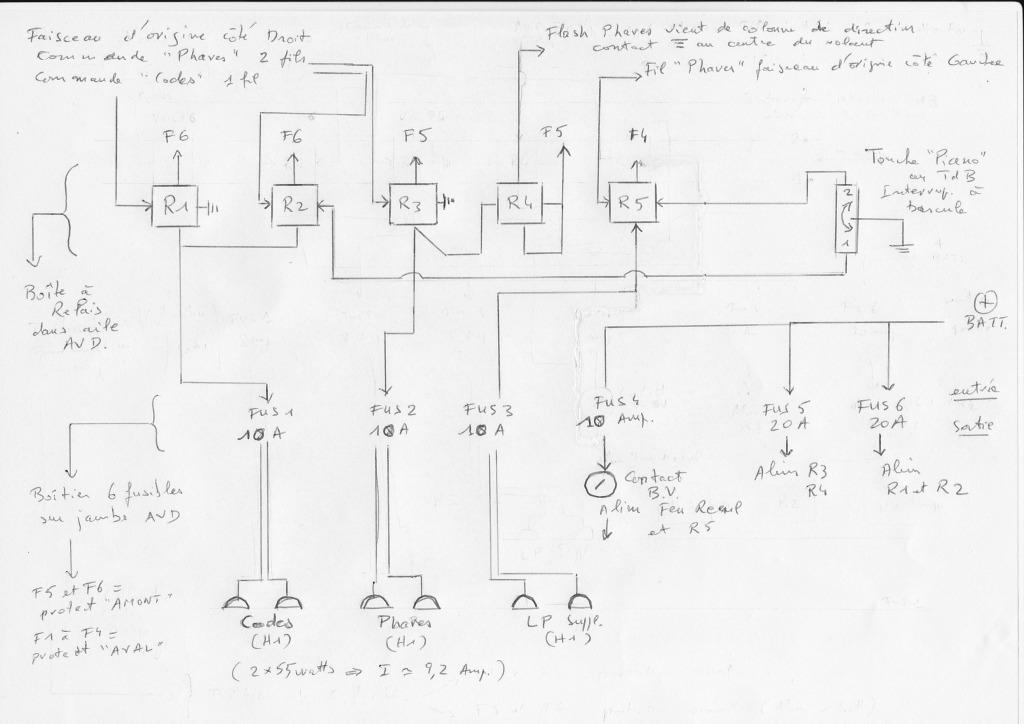 Faisceau d'origine côté Droit
Commande "Phares" 2 fils
Commande "Codes" 1 fil
Flash Phares vient de colonne de direction
contact = au centre du volant
Fil "Phares" faisceau d'origine côté Gauche
F6
F6
F5
F5
F4
Touche "Piano"
au TdB
Interrup. à
bascule
R1
R2
R3
R4
R5
2
1
Boîte à
Relais
dans aile
AVD.
+
BATT.
entrée
sortie
FUS 1
10 A
FUS 2
10 A
FUS 3
10 A
FUS 4
10 Amp.
FUS 5
20 A
FUS 6
20 A
Contact
B.V.
Alim Feu Recul
et R5
Alim R3
R4
Alim
R1 et R2
Boîtier 6 fusibles
sur jambe AVD
F5 et F6 =
protect "AMONT"
F1 à F4 =
protect "AVAL"
Codes
(H1)
Phares
(H1)
LP Suppl.
(H1)
(2 x 55 watts => I ≃ 9,2 Amp.)